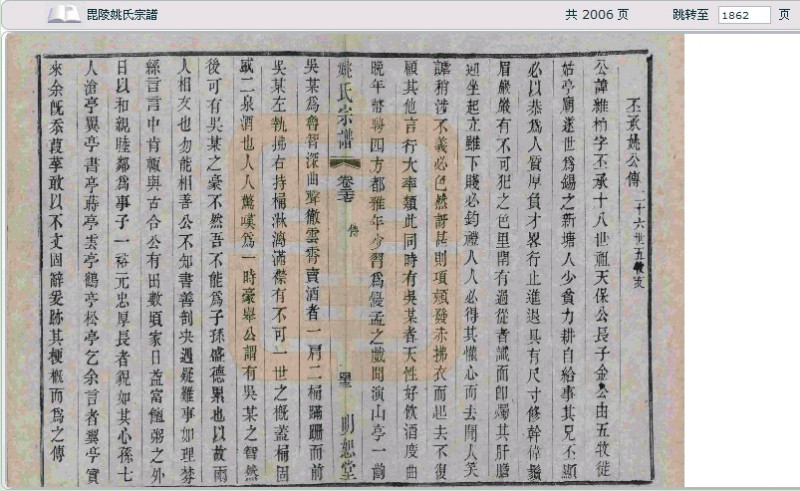 毘陵姚氏宗譜
共 2006 页
跳转至 1862 页
丕承姚公傳 二十六世五牧亥
公諱維柏字丕承十八世祖天保公長子金公由五牧徙
姑亭廟遂世為錫之新塘人少貧力耕自給事其兄丕顯
必以恭為人質厚負才畧行止進退具有尺寸修幹偉鬚
眉嚴嚴有不可犯之色里閈有過從者識面即燭其肝膽
週坐起立雖下賤必鈞禮人人必得其懽心而去聞人笑
謔稍涉不義必色然訝甚則項頰發赤拂衣而起去不復
顧其他言行大率類此同時有吳某者天性好飲酒度曲
晚年嘗聘四方都雅年少習為優孟之戲間演山亭一齣
姚氏宗譜 卷 傳 明恕堂
吳某為魯智深曲聲徹雲霄賣酒者一肩二桶蹣跚而前
吳某左執拂右持桶淋漓滿襟有不可一世之概蓋桶固
或二泉酒也人人驚嘆為一時豪舉公謂有吳某之智然
後可有吳某之豪不然吾不能為子孫盛德累也以故兩
人相友也勿能相善公不知書善剖央遇疑難事如理棼
絲言言中肯輒與古合公有田數頃家日益富饘粥之外
日以和親睦鄰為事子一裕元忠厚長者視如其心孫七
人滄亭翼亭書亭蒔亭雲亭鶴亭松亭乞余言者翼亭實
來余既忝葭莩敢以不文固辭爰跡其梗概而為之傳